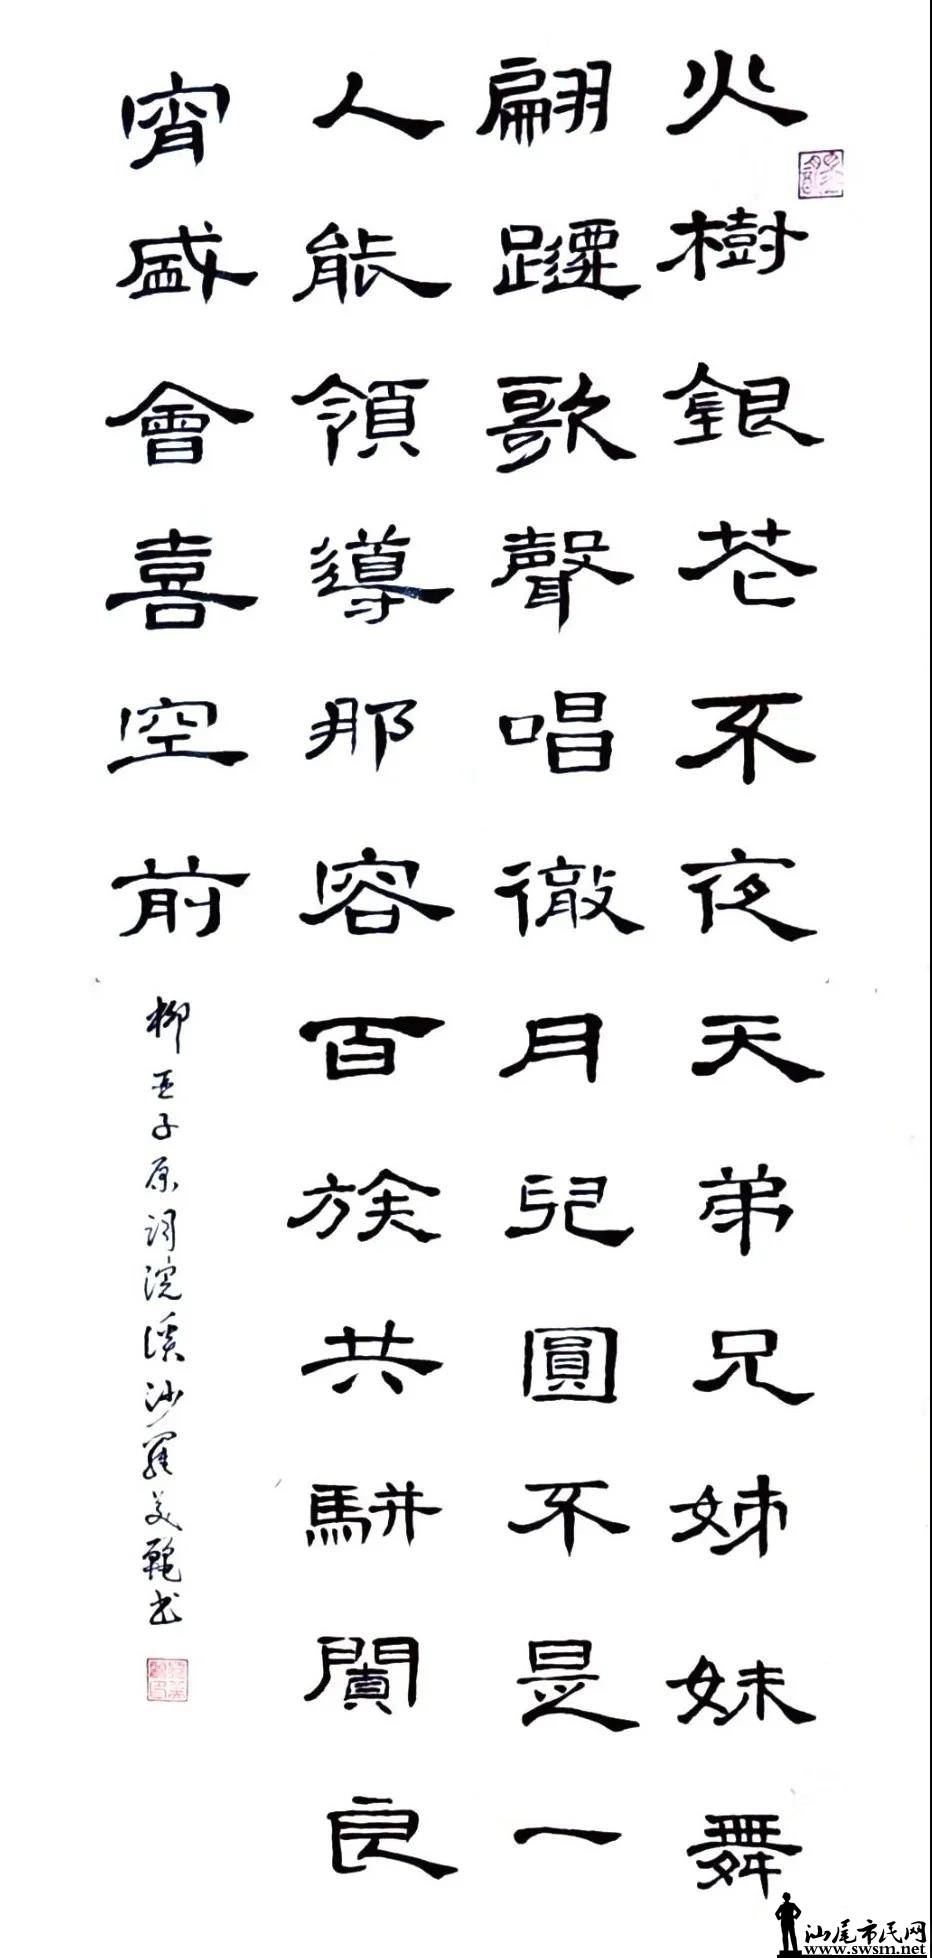 火樹銀花不夜天弟兄姊妹舞
翩躚歌聲唱徹月兒圓不是一
人能領導那容百族共駢闐良
宵盛會喜空前
柳亚子原词浣溪沙羅美艷书
汕尾市民网
www.swsm.net